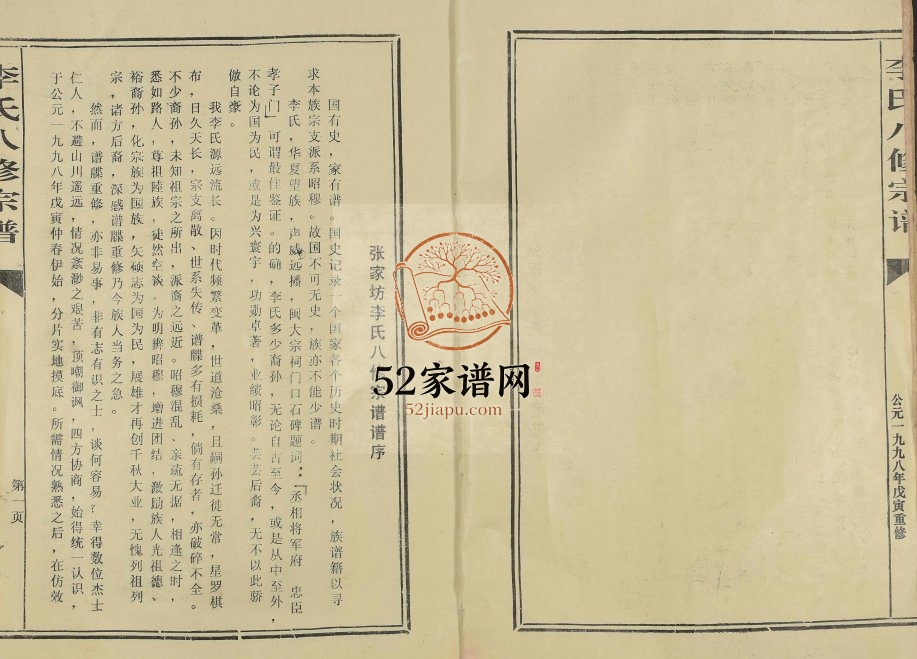 李氏八修宗谱
公元一九九八年戊寅重修
张家坊李氏八修宗谱谱序
国有史，家有谱。国史记录一个国家各个历史时期社会状况，族谱籍以寻
求本族宗支派系昭穆。故国不可无史，族亦不能少谱。
李氏，华夏望族，声威远播，闽大宗祠门口石碑题词：「丞相将军府　忠臣
孝子门」可谓最佳鉴证。的确，李氏多少裔孙，无论自古至今，或是从中至外，
不论为国为民，或是为兴寰宇，功勋卓著，业绩昭彰。芸芸后裔，无不以此骄
傲自豪。
我李氏源远流长。因时代频繁变革，世道沧桑，且嗣孙迁徒无常，星罗棋
布，日久天长，宗支离散、世系失传、谱牒多有损耗，倘有存者，亦破碎不全。
不少裔孙，未知祖宗之所出，派裔之远近。昭穆混乱、亲疏无据，相逢之时，
悉如路人，尊祖陸族，徒然空谈。为明辨昭穆，增进团结，激励族人光祖德、
裕裔孙，化宗族为国族，矢硕志为国为民，展雄才再创千秋大业，无愧列祖列
宗，诸方后裔，深感谱牒重修乃今族人当务之急。
然而，谱牒重修，亦非易事，非有志有识之士，谈何容易？幸得数位杰士
仁人，不避山川遥远，情况紊渺之艰苦，顶嘲御讽，四方协商，始得统一认识，
于公元一九九八年戊寅仲春伊始，分片实地摸底。所需情况熟悉之后，在仿效
李氏八修宗谱
第一页
52家谱网
52jiapu.com